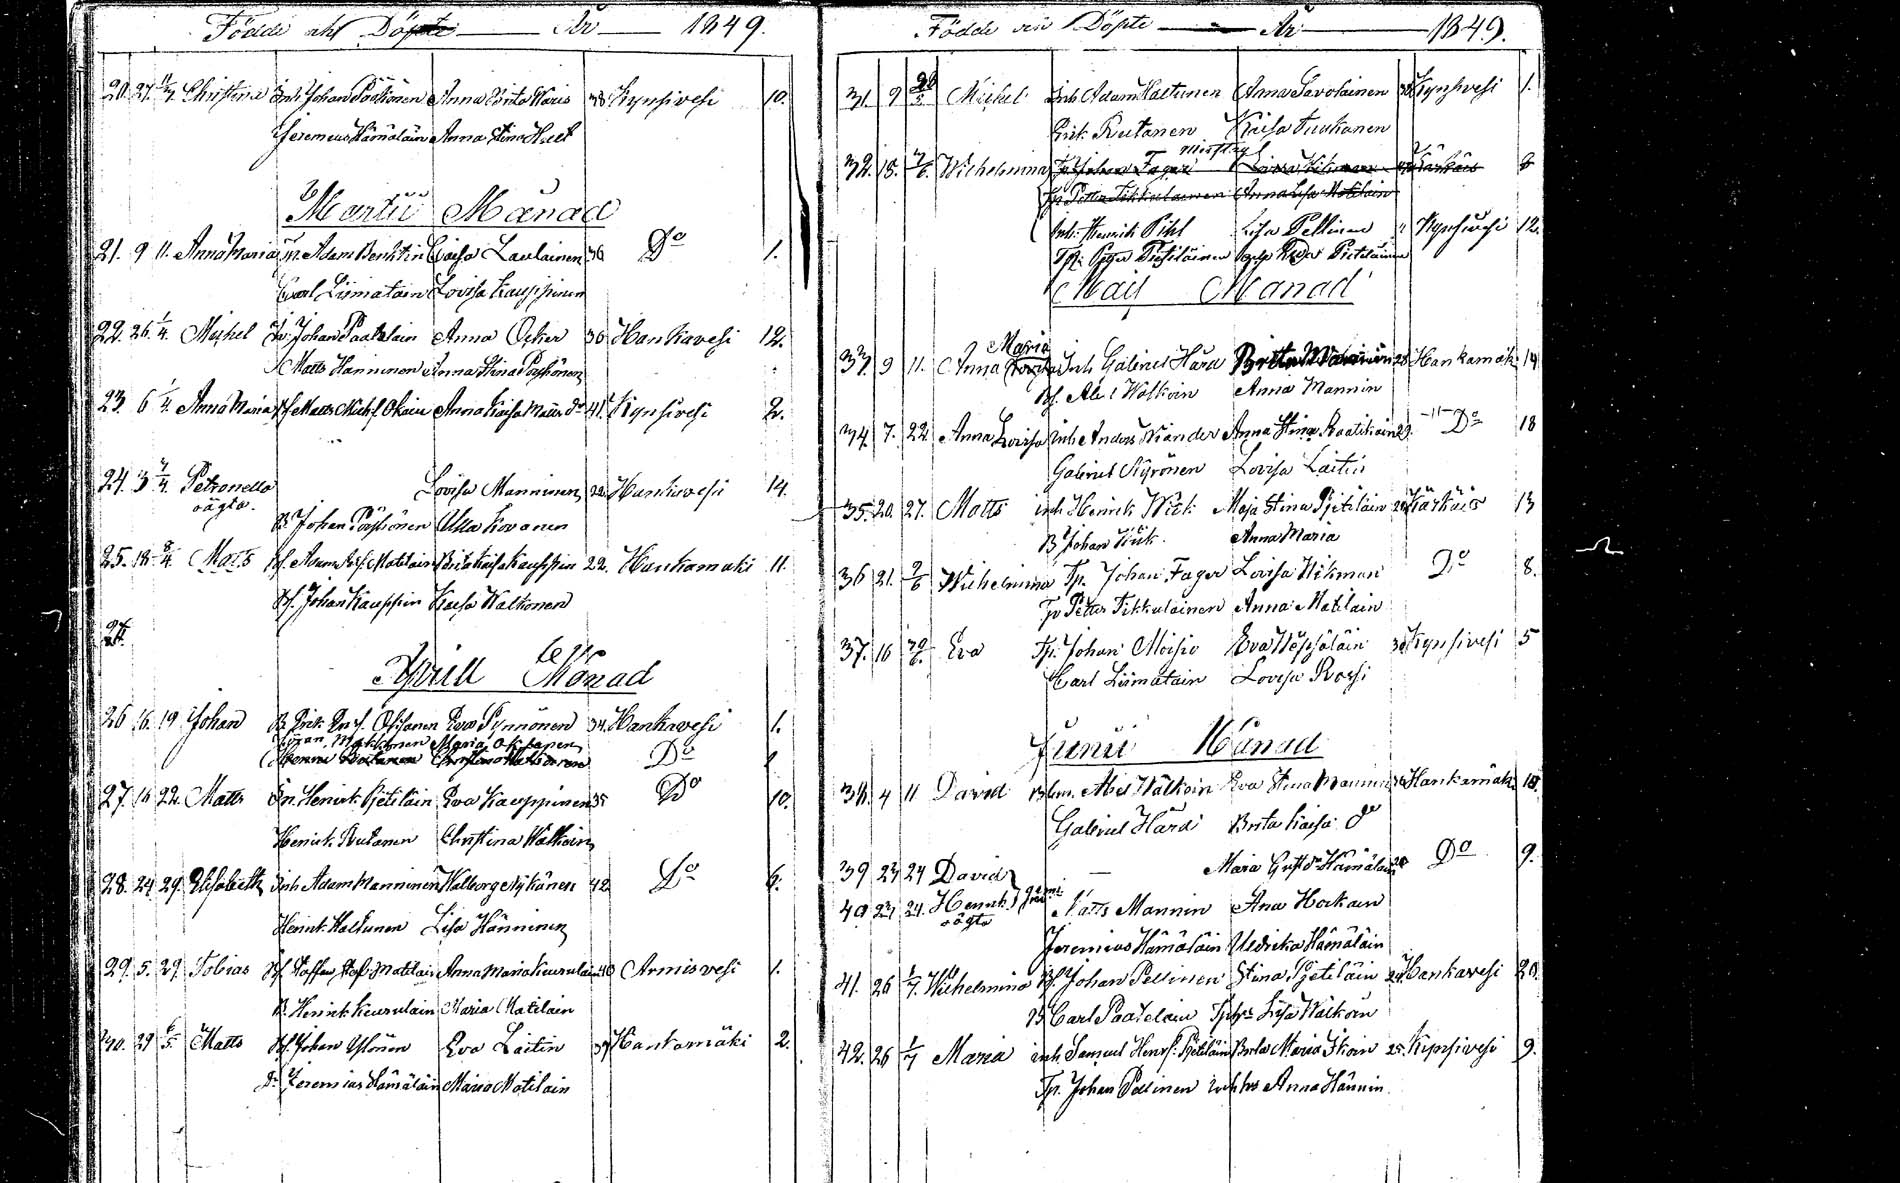 Födde och Döpte År 1849.
20. 27. 11/3 Christina Inh. Johan Pöyhönen Anna Brita Waris 38 Kynsivesi 10.
Jeremias Hämäläin Anna Stina Hult
Martii Månad
21. 9 11. Anna Maria Adam Benktin Caisa Laulainen 36 Do 1.
Carl Liimatain Lovisa Kauppinen
22. 26 1/4. Michel Johan Paatelain Anna Ocker 36 Hankavesi 12.
Matts Hänninen Anna Stina Pöyhönen
23. 6 1/4. Anna Maria Matts Michelss. Anna Kaisa Matts dr 41 Kynsivesi 2.
24. 3 7/4. Petronella Lovisa Manninen 22 Hankavesi 14.
oägta. B. Johan Pöyhönen Ulla Kovanen
25. 18 8/4 Mats Adam Matilain Brita Kaisa Kauppin 22. Hankamäki 11.
Johan Kauppin Kaisa Walkonen
Aprill Månad
26 16. 19 Johan B. Erik Oksanen Eva Pynnönen 34. Hankavesi 1.
Göran Makkonen Maria Oksanen Do
27. 16 22. Matts In. Henrik Pjetiläin Eva Kauppinen 35 Do 10.
Henrik Rutanen Christina Walkoin
28. 24. 29. Elisabeth Inh Adam Manninen Walborg Nykänen 42 Do 6.
Henrik Haltunen Lisa Hänninen
29. 5. 29. Tobias Staffan Matilain Anna Maria Keurulain 40 Armisvesi 1.
B. Henrik Keurulain Maria Matilain
30. 29 6/5 Matts Johan Ylönen Eva Laitin 37 Hankamäki 2.
Jeremias Hämäläin Maria Matilain
Födde och Döpte År 1849.
31. 9 28/5 Michel Inh Adam Haltunen Anna Savolainen Kynsivesi 1.
Erik Rutanen Kaisa Tuukanen
32. 15. Wilhelmina Johan Fager Lovisa Wikman Kärkäis 8
Petter Tikkulainen Anna Lisa Matilain
Inh. Henrik Pihl Lisa Pellinen Kynsivesi 12.
Pietiläinen Pietiläinen
Maij Månad
Maria
33. 9 11. Anna Inh Gabriel Hård Brita Manninen 28 Hankamäki 14
Abel Walkoin Anna Mannin
34. 7. 22 Anna Lovisa Inh Anders Wiander Anna Stina Raatikain 29. Do 18
Gabriel Kyrönen Lovisa Laitin
35. 20. 27. Matts inh Henrik Wiik Maja Stina Pjetiläin Kärkäis 13
B Johan Wiik. Anna Maria
36 21. 2/6 Wilhelmina Tp. Johan Fager Lovisa Wikman Do 8.
Tp Petter Tikkulainen Anna Matilain
37. 16 Eva Tp. Johan Moisio Eva Hopsöläin Kynsivesi 5
Carl Liimatain Lovisa Rossi
Junii Månad
38. 4 11 David Abel Wälkoin Eva Stina Mannin Hankamäki 10.
Gabriel Hård Brita Kaisa do
39 23 24 David Maria Gust. dr Hämäläin 28 Do 9.
40 23 24. Henrik
oägta Matts Mannin Ana Hokain
Jeremias Hämäläin Uldrika Hämäläin
41. 26 1/7. Wilhelmina Johan Pellinen Stina Pjetiläin Hankavesi 20.
B Carl Paatelain Lisa Wälkoin
42. 26 1/7 Maria inh Samuel Henrs. Pjetiläin Brita Maria Ikoin 25. Kynsivesi 9.
Tp. Johan Pellinen Anna Hännin